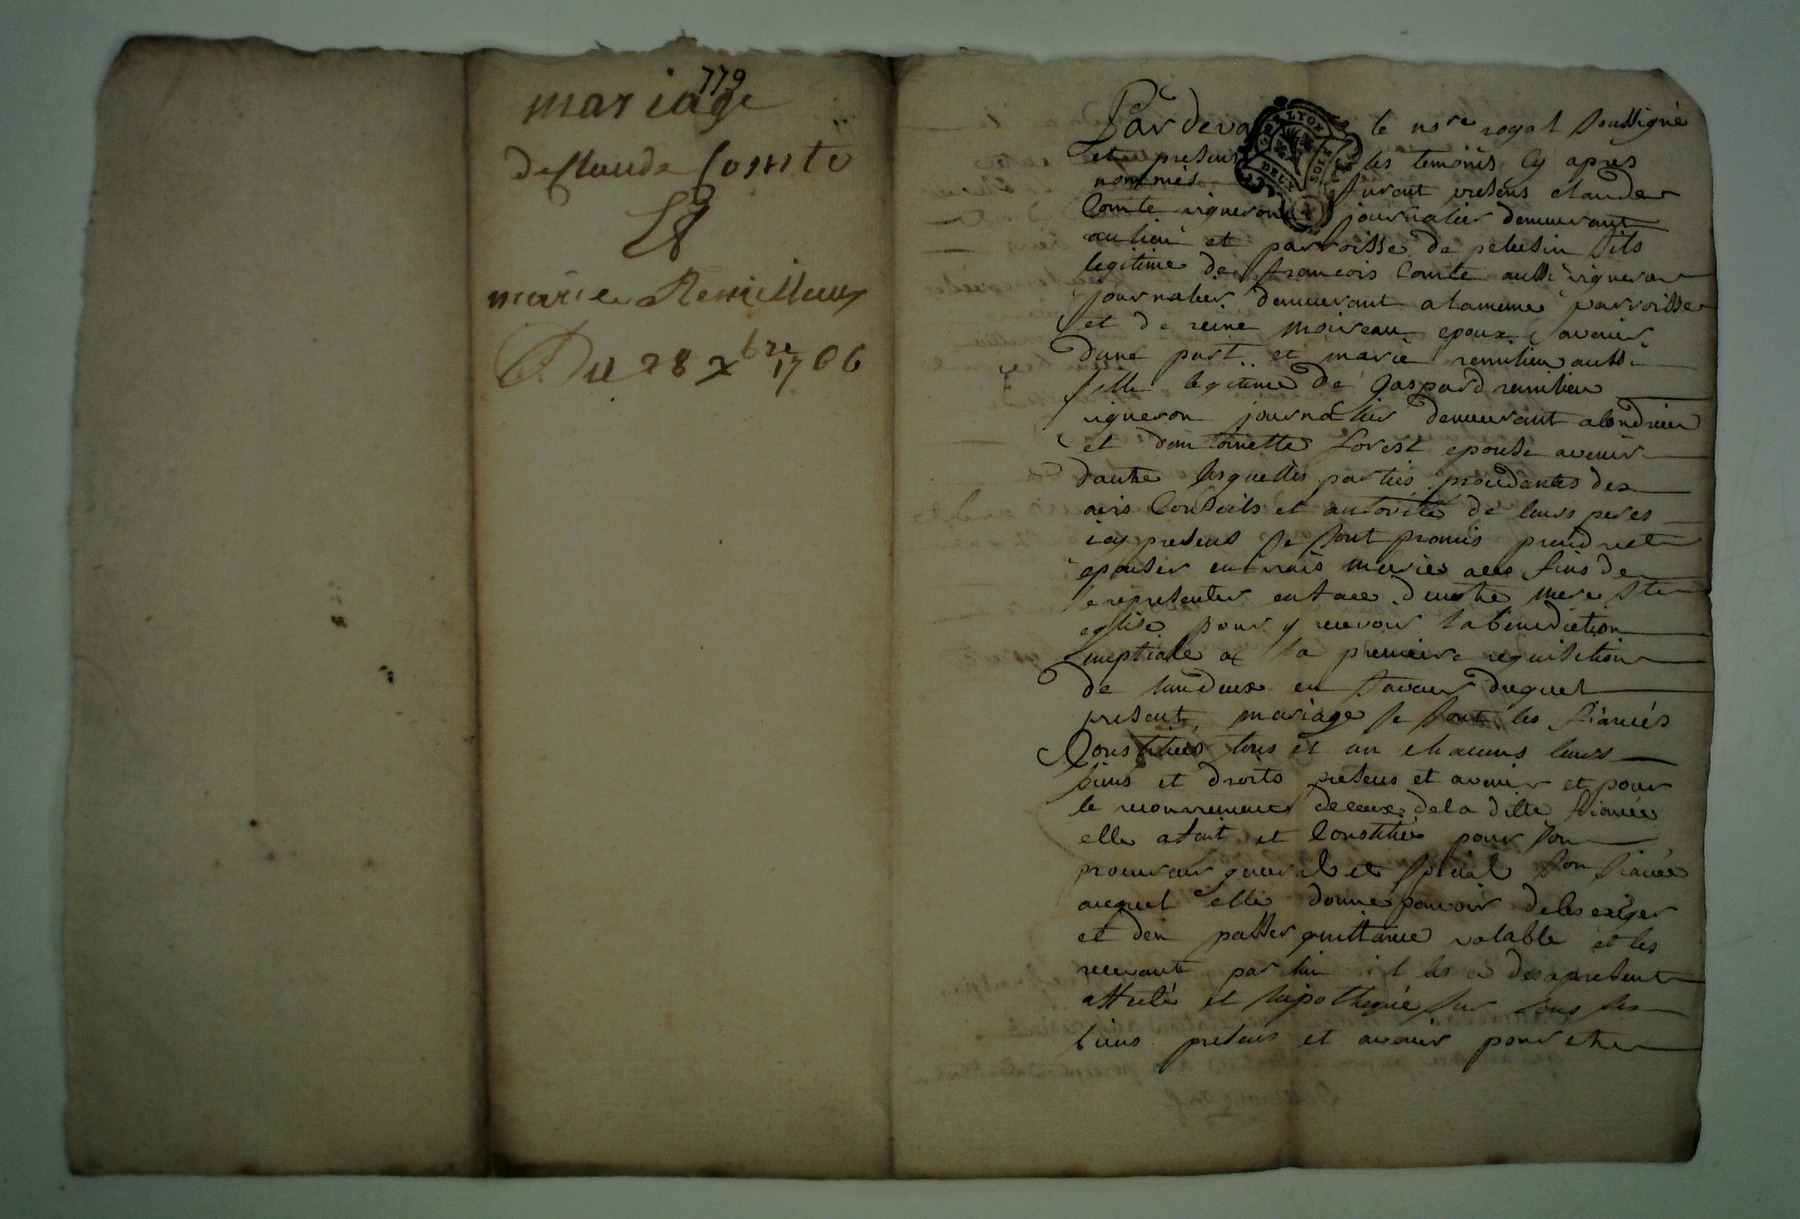 779
mariage
de Claude Comte
&
marie Remilleux
Du 28 xbre 1786
Par deva le nore royal soussigné
et presens les temoins cy après
nommés furent presens claude
Comte vigneron journalier demeurant
au lieu et parroisse de pelusin fils
legitime de francois Comte aussi vigneron
journalier demeurant a la meme parroisse
et de reine moireau epoux avenir
dune part et marie remilieu aussi
fille legitime de Gaspard remilieu
vigneron journalier demeurant a
et dantoinette forest epouse avenir
dautre lesquelles parties procedantes des
avis Conseils et autorité de leurs peres
icy presens se sont promis prendre et
epouser en vrais maries aux fins de
se representer en face de notre mere ste
eglise pour y recevoir la benediction
nuptiale a la premiere requisition
de lun deux en faveur duquel
present mariage se sont les fiancés
Constitués tous et un chacuns leurs
biens et droits presens et avenir et pour
le recouvrement de ceux de la ditte fiancée
elle a fait et Constitué pour son
procureur general et special son fiancé
auquel elle donne pouvoir de les exiger
et den passer quittance valable et les
recevant par lui il les a des a present
assuré et hipothequé sur tous ses
biens presens et avenir pour etre
LYON
DEUX SOLS